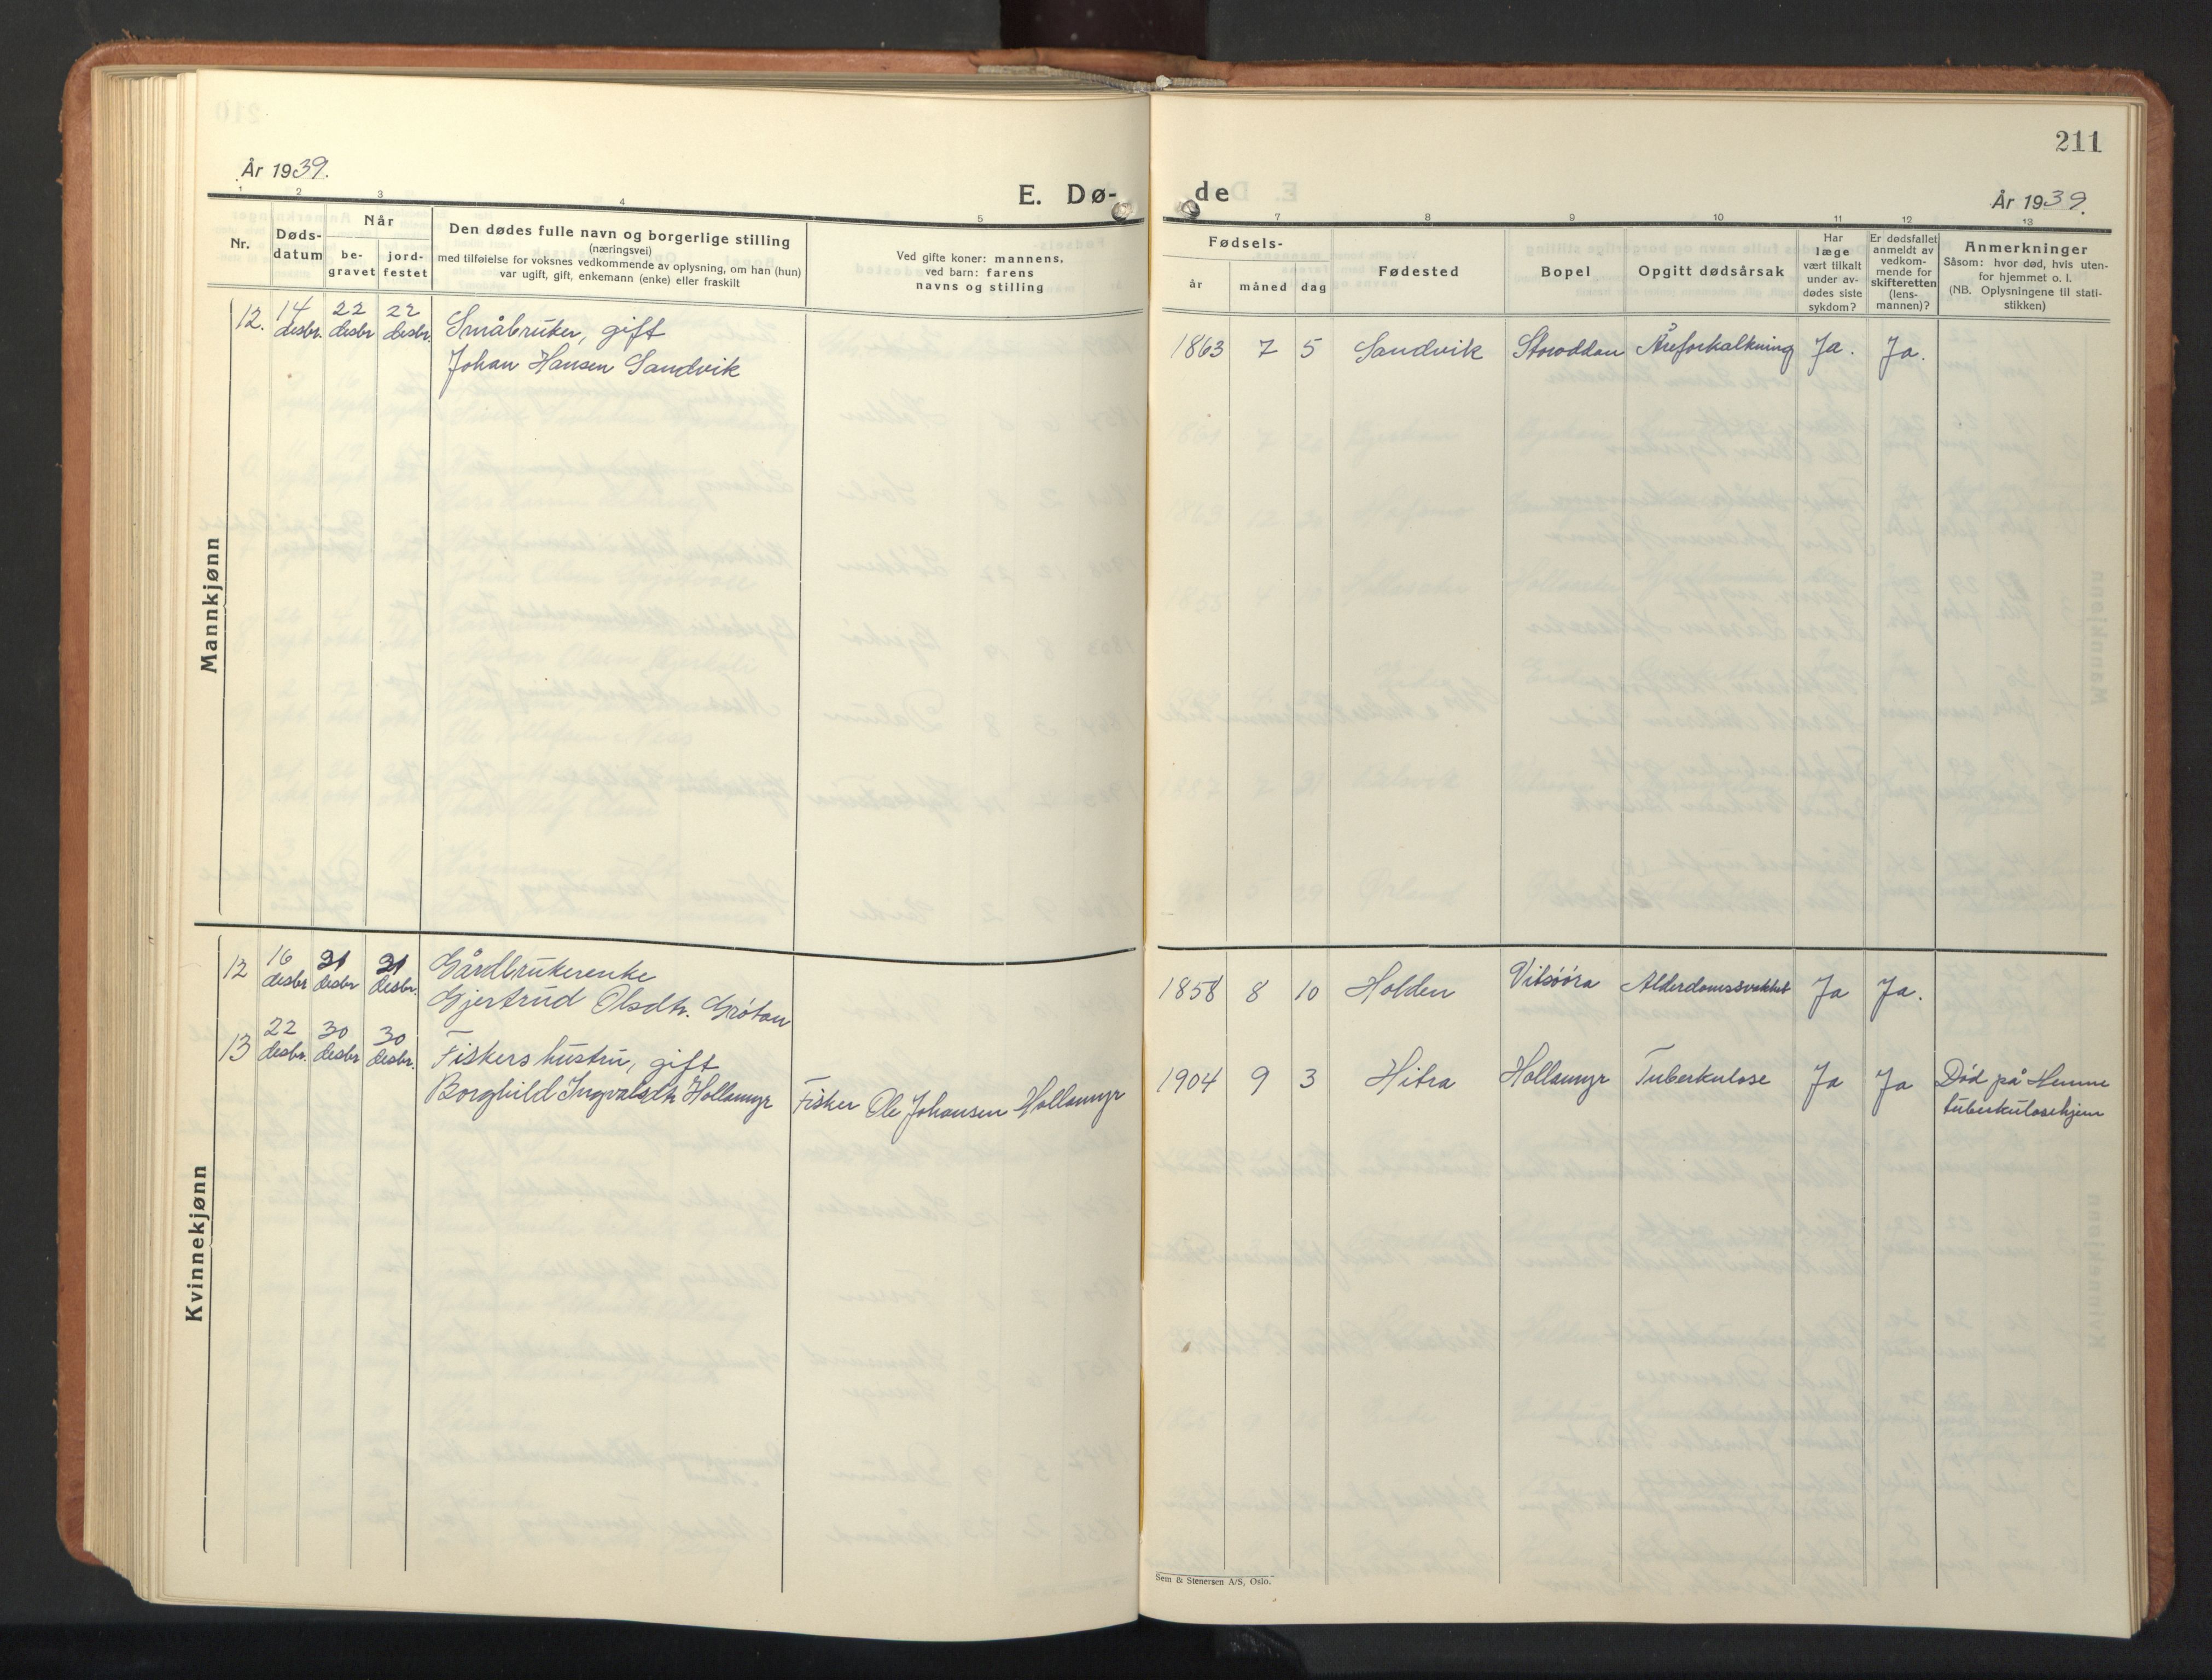 211
År 1939.
E. Dø-
de
År 1939.
1 2 3 4 5 7 8 9 10 11 12 13
Nr.
Døds-
datum
Når
be-
gravet
jord-
festet
Den dødes fulle navn og borgerlige stilling
(næringsvei)
med tilføielse for voksnes vedkommende av oplysning, om han (hun)
var ugift, gift, enkemann (enke) eller fraskilt
Ved gifte koner: mannens,
ved barn: farens
navns og stilling
Fødsels-
år
måned
dag
Fødested
Bopel
Opgitt dødsårsak
Har
læge
vært tilkalt
under av-
dødes siste
sykdom?
Er dødsfallet
anmeldt av
vedkom-
mende for
skifteretten
(lens-
mannen)?
Anmerkninger
Såsom: hvor død, hvis uten-
for hjemmet o. l.
(NB. Oplysningene til stati-
stikken)
Mannkjønn
12. 14 desbr. 22 desbr 22 desbr. Småbruker, gift
Johan Hansen Sandvik
1863 7 5 Sandvik Storoddan Åreforkalkning Ja. Ja.
Kvinnekjønn
12 16 desbr 21 desbr 21 desbr. Gårdbrukerenke
Gjertrud Olsdtr. Grøtan
1858 8 10 Holden Vitsøøra Alderdomssvekket Ja Ja.
13 22 desbr. 30 desbr 30 desbr. Fiskers hustru, gift
Borghild Ingvalsdtr Hollamyr Fisker Ole Johansen Hollamyr
1904 9 3 Hitra Hollamyr Tuberkulose Ja Ja Død på Hemne
tuberkulosehjem
Sem & Stenersen A/S, Oslo.